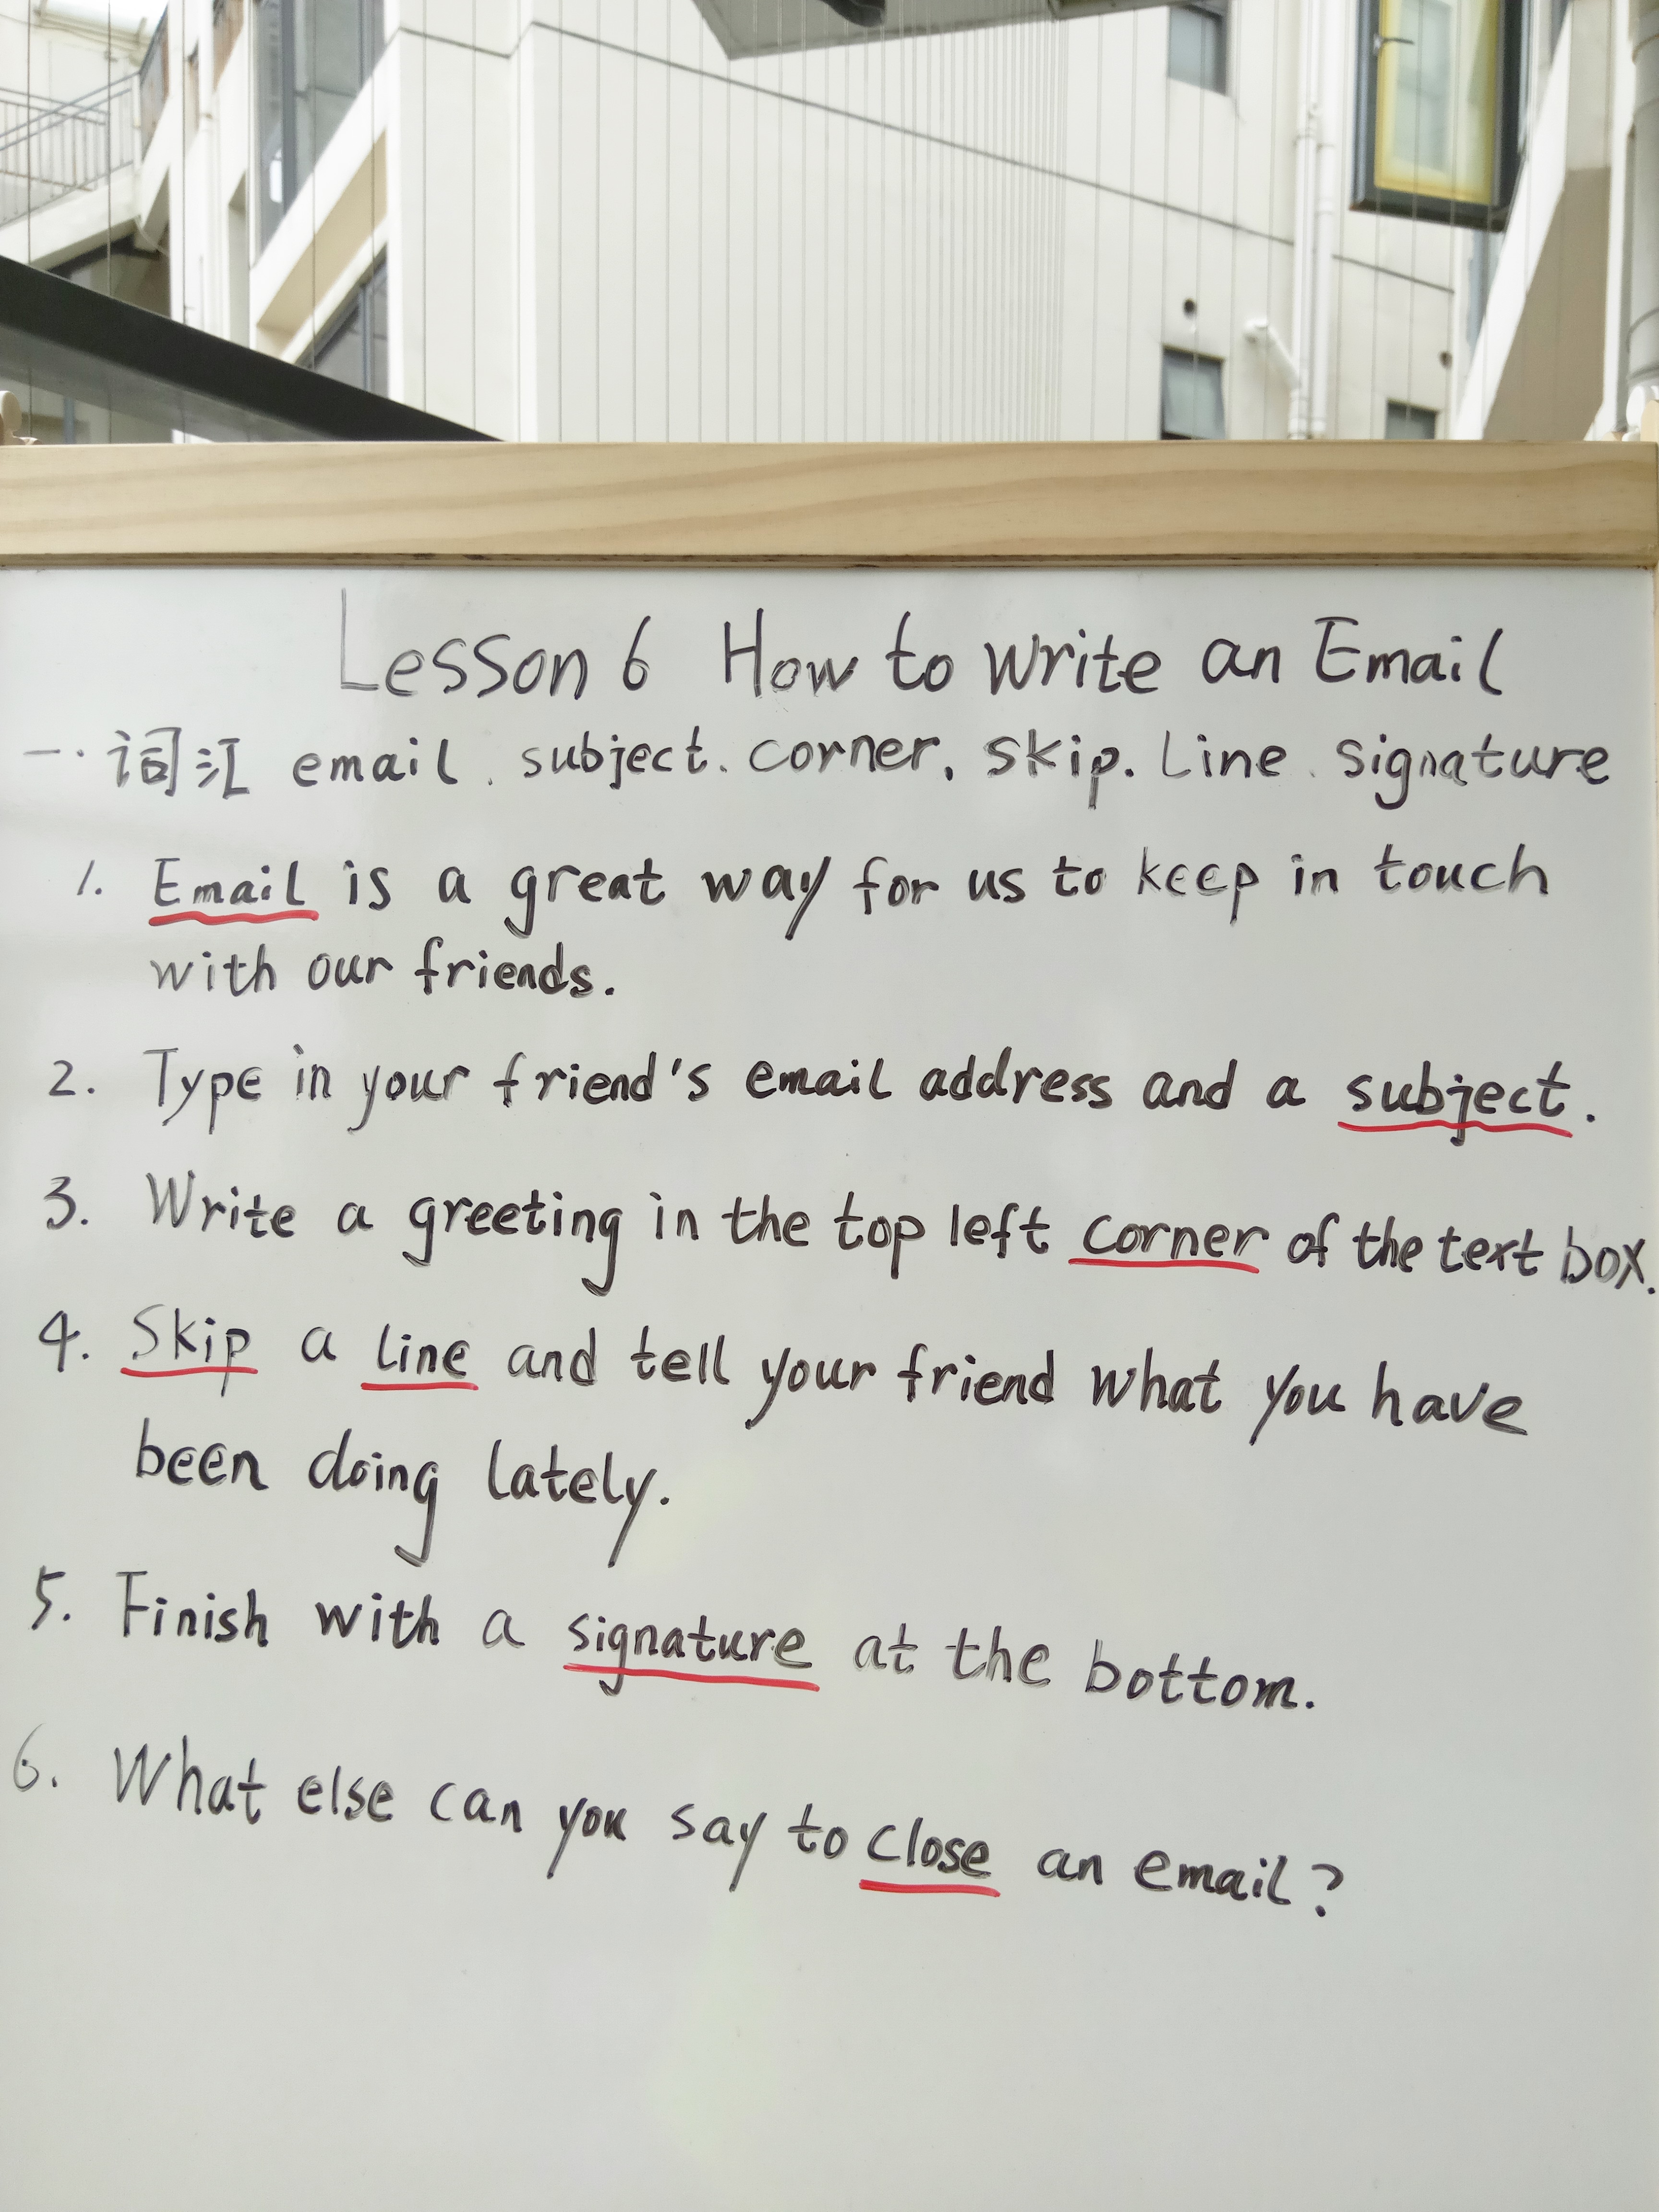 Lesson 6 How to write an Email
一. 词汇 email. subject. corner, skip. line. signature
1. Email is a great way for us to keep in touch
with our friends.
2. Type in your friend's email address and a subject.
3. Write a greeting in the top left corner of the text box.
4. Skip a line and tell your friend what you have
been doing lately.
5. Finish with a signature at the bottom.
6. What else can you say to close an email?